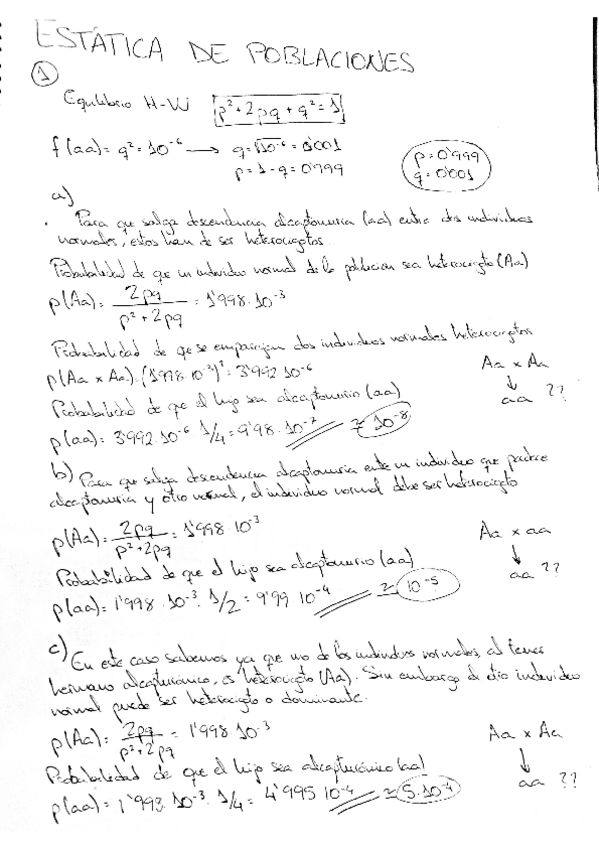 ESTÁTICA DE POBLACIONES
①
Equilibrio H-W p²+2pq+q²=1
f(aa)=q²=10⁻⁶ → q=√10⁻⁶=0'001
p=1-q=0'999
p=0'999
q=0'001
a)
Para que salga descendencia alcaptonuria (aa) entre dos individuos
normales, estos han de ser heterocigotos.
Probabilidad de que un individuo normal de la poblacion sea heterocigoto (Aa)
p(Aa)= 2pq / p²+2pq = 1'998·10⁻³
Probabilidad de que se emparejen dos individuos normales heterocigotos
p(Aa x Aa)=(1'998 10⁻³)²=3'992 10⁻⁶
Aa x Aa
↓
aa ??
Probabilidad de que el hijo sea alcaptonurio (aa)
p(aa)= 3'992·10⁻⁶ 1/4=9'98·10⁻⁷ ≈ 10⁻⁸
b) Para que salga descendencia alcaptonuria entre un individuo que padece
alcaptonuria y otro normal, el individuo normal debe ser heterocigoto
p(Aa)= 2pq / p²+2pq = 1'998·10⁻³
Aa x aa
↓
aa ??
Probabilidad de que el hijo sea alcaptonurio (aa)
p(aa)=1'998·10⁻³·1/2=9'99 10⁻⁴ ≈ 10⁻⁵
c) En este caso sabemos ya que uno de los individuos normales, al tener
hermano alcapturónico, es heterocigoto (Aa). Sin embargo el otro individuo
normal puede ser heterocigoto o dominante.
p(Aa)= 2pq / p²+2pq = 1'998 10⁻³
Aa x Aa
↓
aa ??
Probabilidad de que el hijo sea alcapturónico (aa)
p(aa)=1'998·10⁻³·1/4= 4'995 10⁻⁴ ≈ 5·10⁻⁴